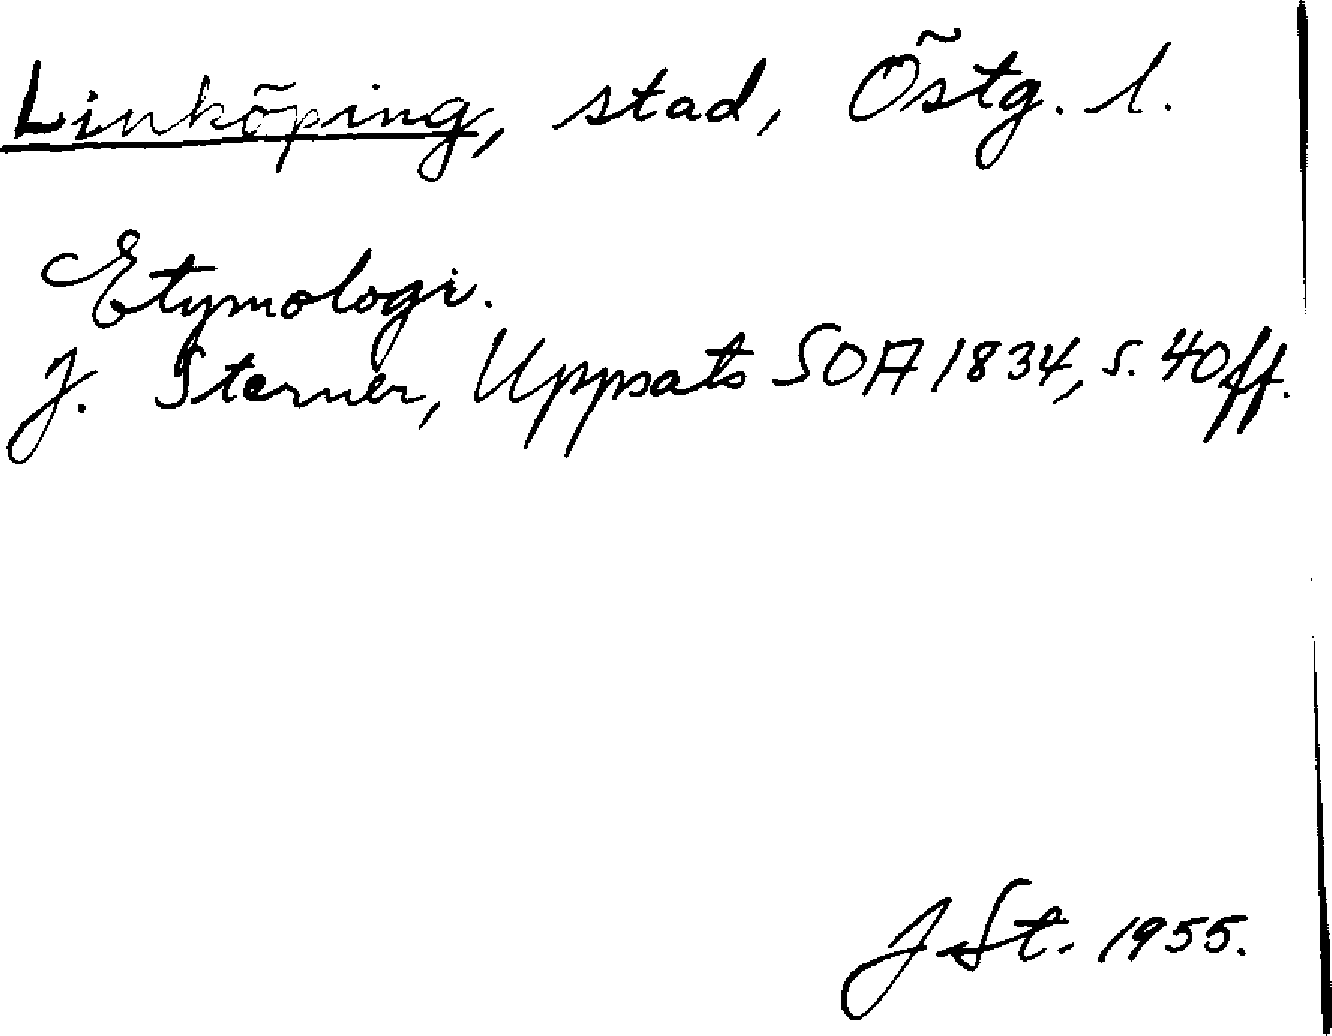 Linköping, stad, Östg. l.
Etymologi.
J. Sterner, Uppsats SOA 1834, s. 40ff.
J St. 1955.